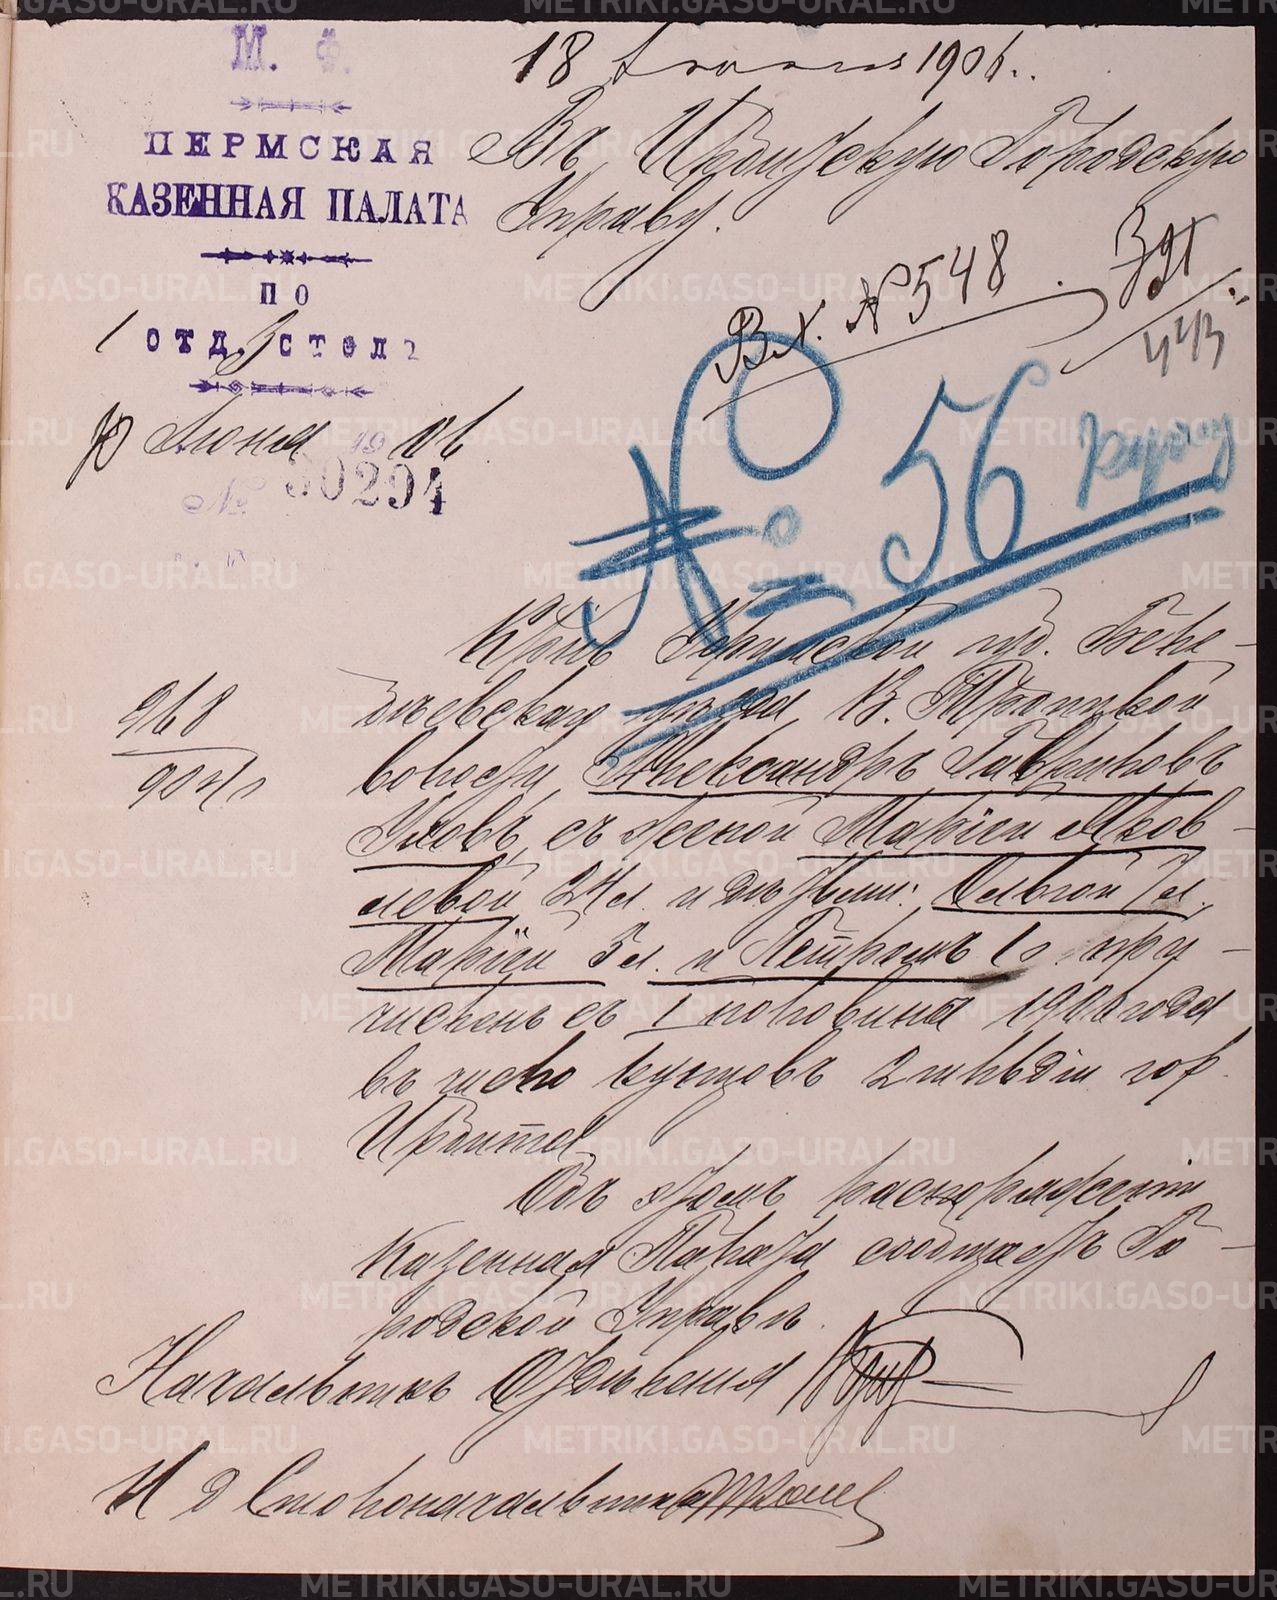 М. Ф.
ПЕРМСКАЯ
КАЗЕННАЯ ПАЛАТА
ПО
1 ОТД. 3 СТОЛ
Іюня 1906
№ 30294
18 1906.
Въ Ирбитскую Городскую
Управу.
Вх. № 548
443
№ 56
968
Крнъ губ.
уѣзда, В. Троицкой
волости, Александръ Гавриловъ
Уховъ, съ женой Маріей Яков-
левой 24 л. и дѣтьми: Ольгой 7 л.,
Маріей 3 л. и Петромъ 1 г. при-
численъ съ 1 половины 1906 года
въ число купцовъ 2 гильдіи гор.
Ирбита.
Объ этомъ распоряженіи
Казенная Палата сообщаетъ Го-
родской Управѣ.
Начальникъ Отдѣленія
И д Столоначальника
METRIKI.GASO-URAL.RU